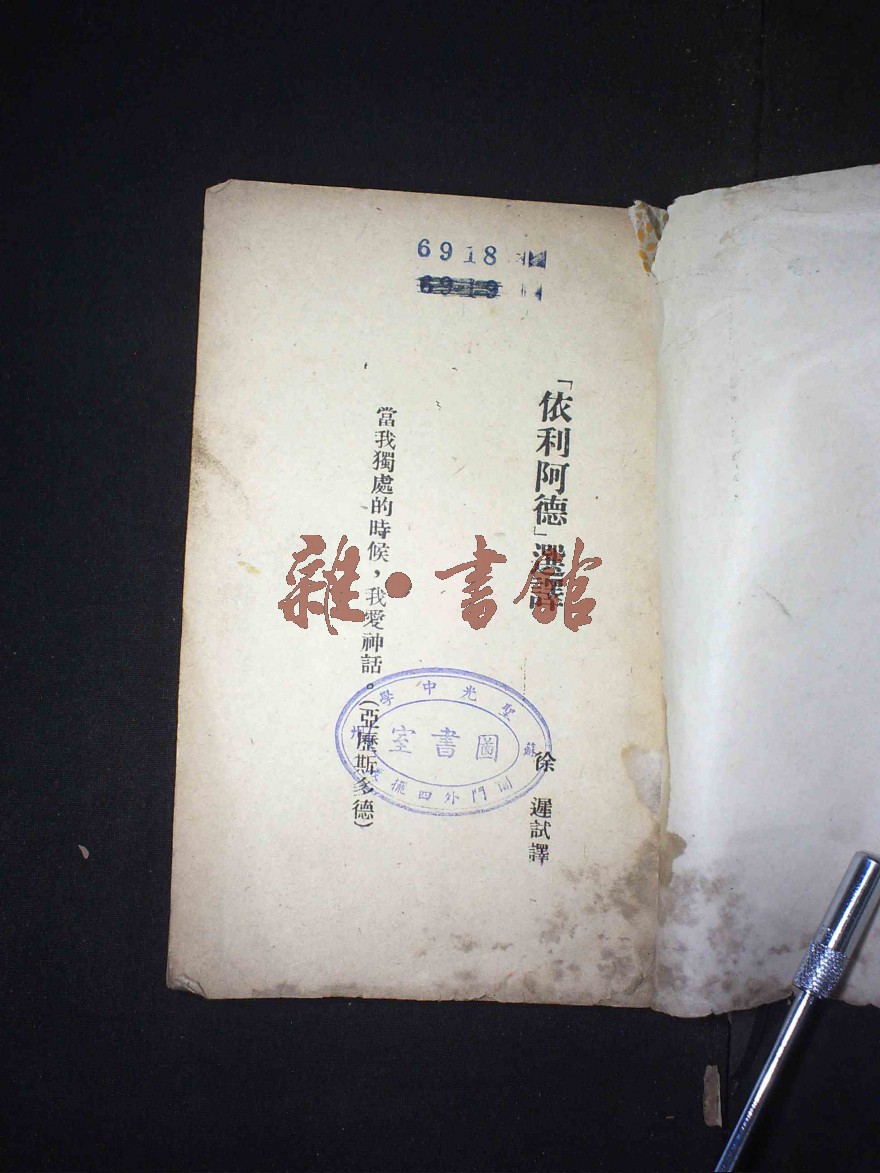 6918
6919
「依利阿德」選譯
徐 遲試譯
當我獨處的時候，我愛神話。（亞歷斯多德）
聖光中學
圖書室
蘇州
閶門外四擺渡
雜·書館